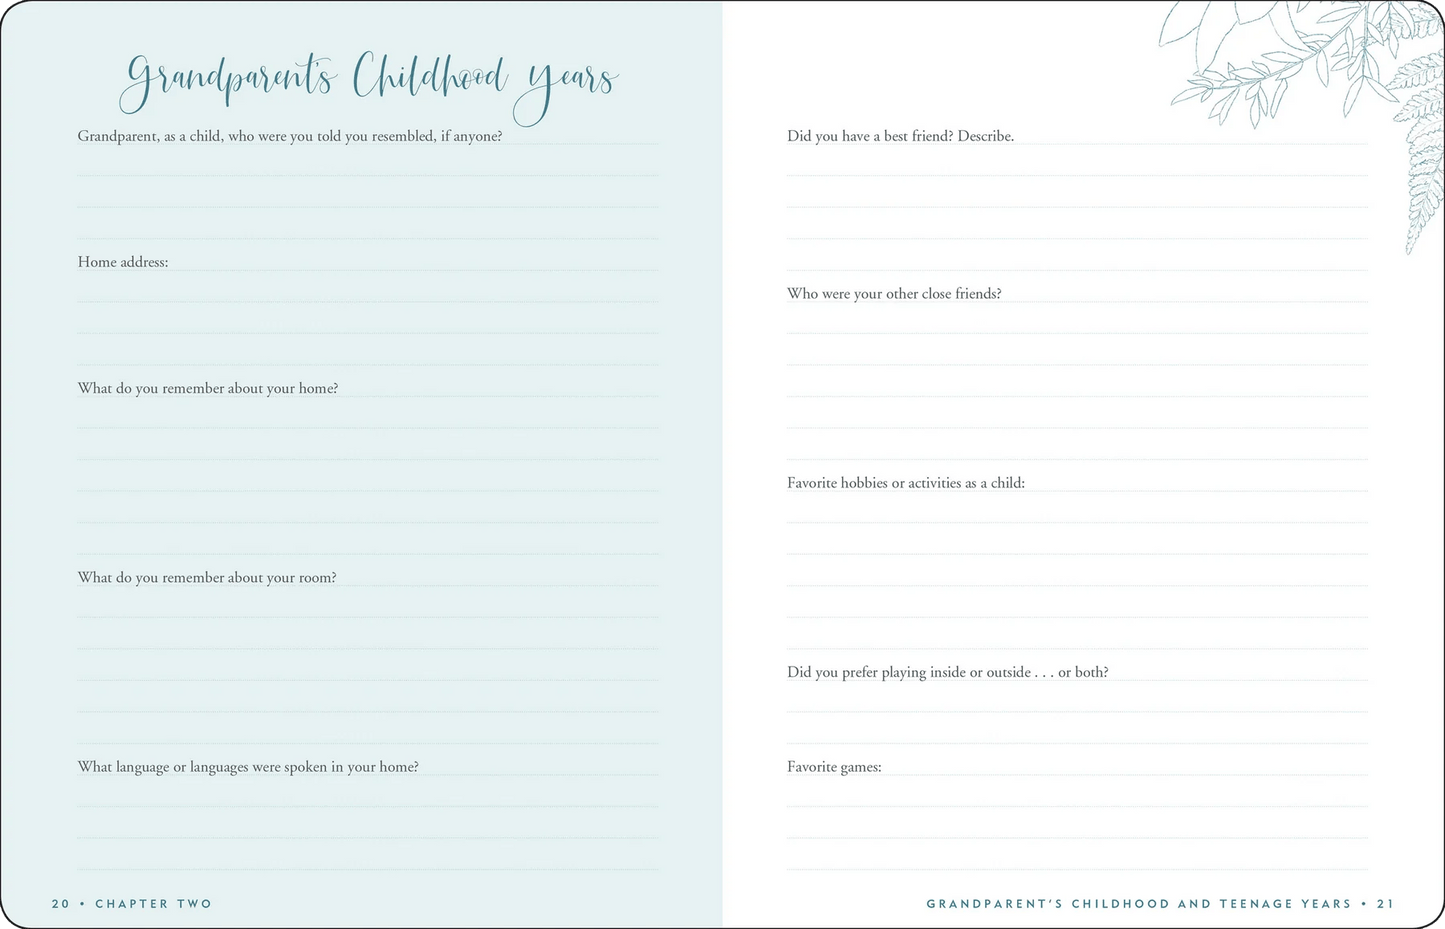 Grandparent's Childhood Years
Grandparent, as a child, who were you told you resembled, if anyone?
Home address:
What do you remember about your home?
What do you remember about your room?
What language or languages were spoken in your home?
20 • CHAPTER TWO
Did you have a best friend? Describe.
Who were your other close friends?
Favorite hobbies or activities as a child:
Did you prefer playing inside or outside . . . or both?
Favorite games:
GRANDPARENT'S CHILDHOOD AND TEENAGE YEARS • 21